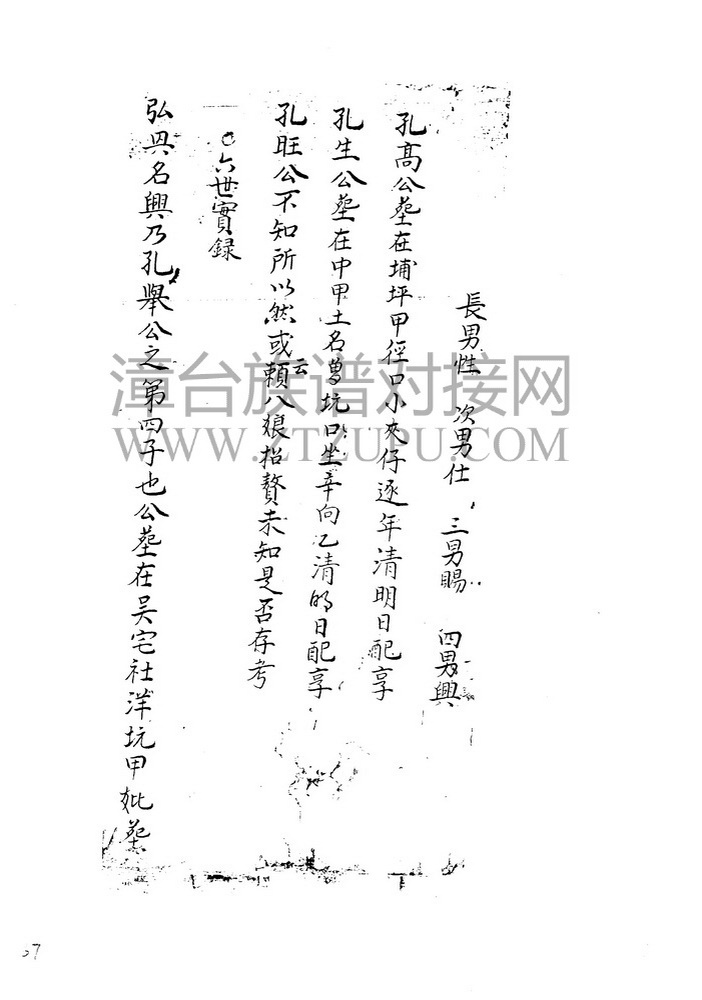 長男性 次男仕 三男賜 四男興
孔高公墓在埔坪甲徑口小夾仔逐年清明日配享
孔生公墓在中甲土名曽坑口坐辛向乙清明日配享
孔旺公不知所以然或云賴八娘招贅未知是否存考
六世實録
弘興名興乃孔舉公之第四子也公墓在吴宅社洋坑甲妣墓
漳台族谱对接网
WWW.ZTZUPU.COM